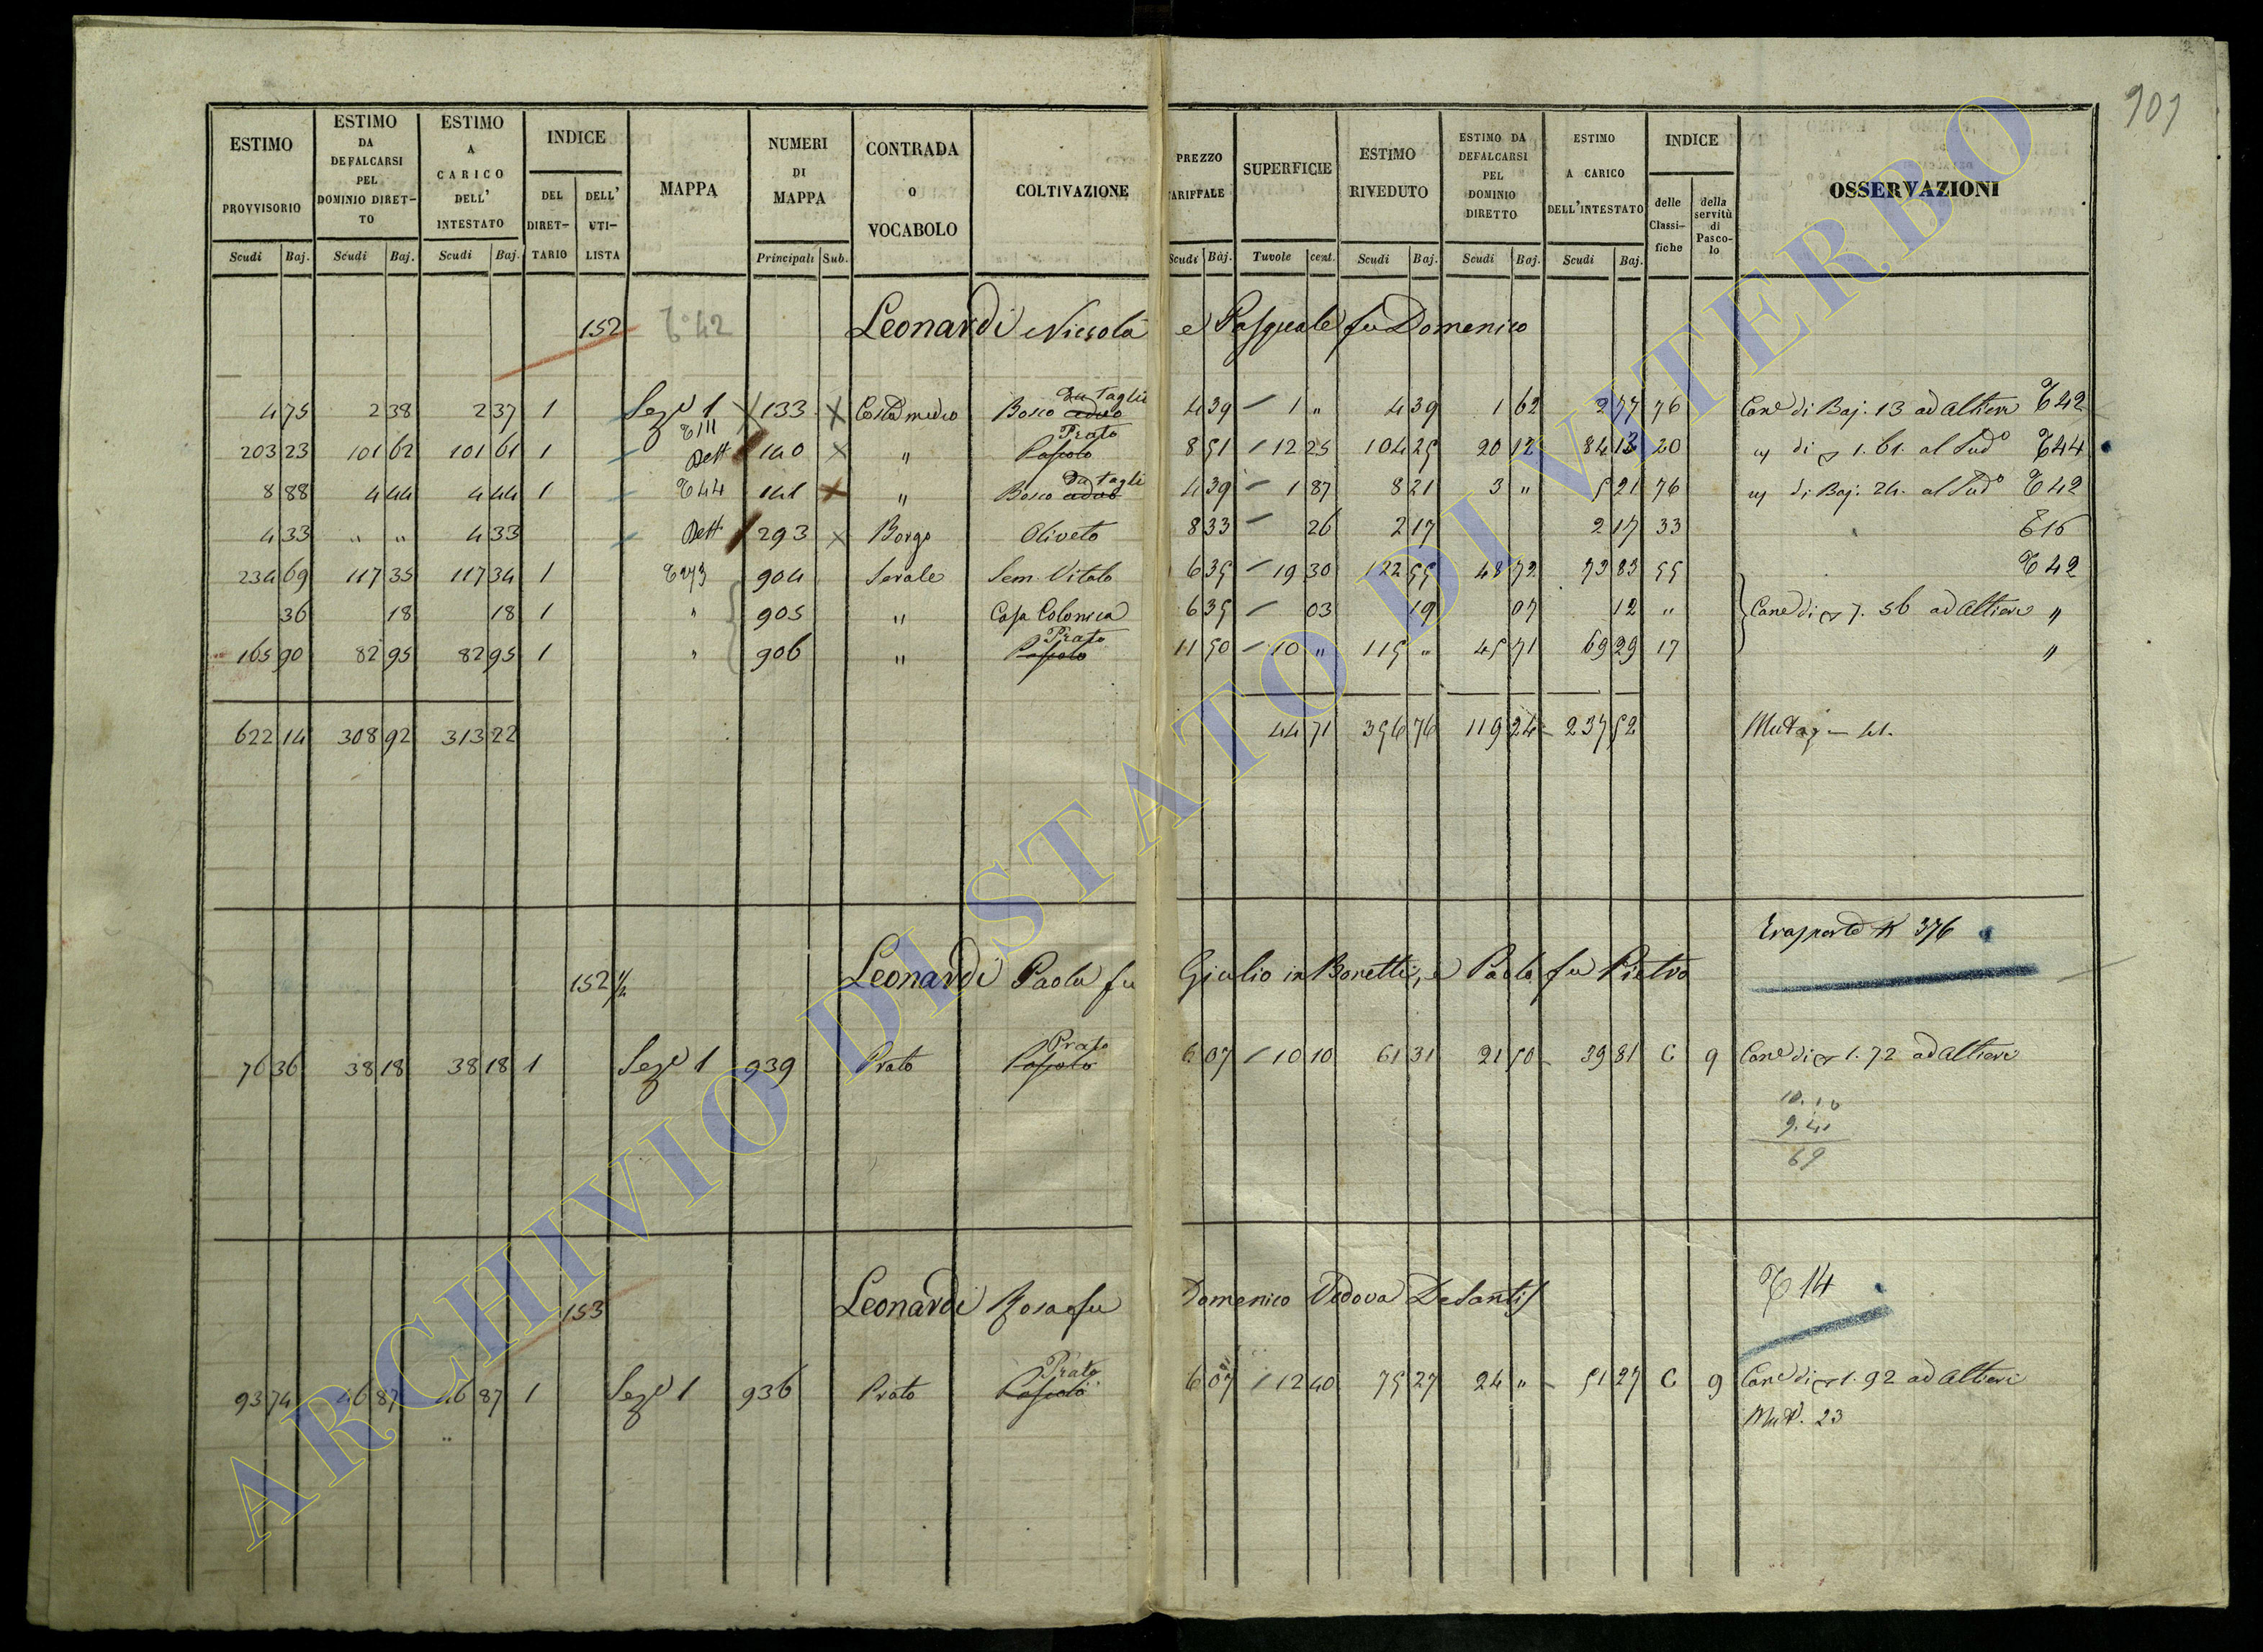 101
ESTIMO PROVVISORIO
ESTIMO DA DEFALCARSI PEL DOMINIO DIRET-TO
ESTIMO A CARICO DELL' INTESTATO
INDICE
DEL DIRET-TARIO
DELL' UTI-LISTA
MAPPA
NUMERI DI MAPPA
CONTRADA o VOCABOLO
COLTIVAZIONE
PREZZO TARIFFALE
SUPERFICIE
ESTIMO RIVEDUTO
ESTIMO DA DEFALCARSI PEL DOMINIO DIRETTO
ESTIMO A CARICO DELL'INTESTATO
INDICE
delle Classi-fiche
della servitù di Pasco-lo
OSSERVAZIONI
Scudi Baj. Scudi Baj. Scudi Baj. Principali Sub. Scudi Baj. Tuvole cent. Scudi Baj. Scudi Baj. Scudi Baj.
152 T° 42 Leonardi Niccola e Pasquale fu Domenico
4 75 2 38 2 37 1 Seze 1 133 Costa medio Bosco Da taglio 4 39 1 " 4 39 1 62 2 77 76 Cane di Baj. 13 ad Altieri T 42
T 111
203 23 101 62 101 61 1 Dett 140 " Pascolo Prato 8 51 12 25 104 25 20 12 84 13 20 di 1. 61. al Sudo T 44
8 88 4 44 4 44 1 T 44 141 " Bosco Da tagli 4 39 1 87 8 21 3 " 5 21 76 di Baj. 24. al Sudo T 42
4 33 " " 4 33 Dett 293 Borgo Oliveto 8 33 26 2 17 2 17 33 T 16
234 69 117 35 117 34 1 T 273 904 Serale Sem. Vitato 6 35 19 30 122 55 48 72 73 83 55 T 42
36 18 18 1 " 905 " Casa Colonica 6 35 03 19 07 12 " Cane di 7. 56 ad Altieri "
165 90 82 95 82 95 1 " 906 " Pascolo Prato 11 50 10 " 115 " 45 71 69 29 17 "
622 14 308 92 313 22 44 71 356 76 119 24 237 52 Mutaz 41.
Trasporto 376
152 1/2 Leonardi Paola fu Giulio in Bonetti, e Paolo fu Pietro
76 36 38 18 38 18 1 Seze 1 939 Prato Pascolo Prato 6 07 10 10 61 31 21 50 39 81 C 9 Cane di 1. 72 ad Altieri
10. 10
9. 41
69
T 14
153 Leonardi Rosa fu Domenico Vedova DeSantis
93 74 46 87 46 87 1 Seze 1 936 Prato Pascolo Prato 6 07 12 40 75 27 24 " 51 27 C 9 Cane di 1. 92 ad Altieri
Mut. 23
ARCHIVIO DI STATO DI VITERBO